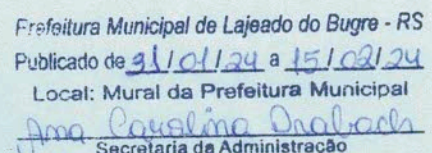 Prefeitura Municipal de Lajeado do Bugre - RS
Publicado de 31/01/24 a 15/02/24
Local: Mural da Prefeitura Municipal
Ana Carolina Drabach
Secretaria da Administração